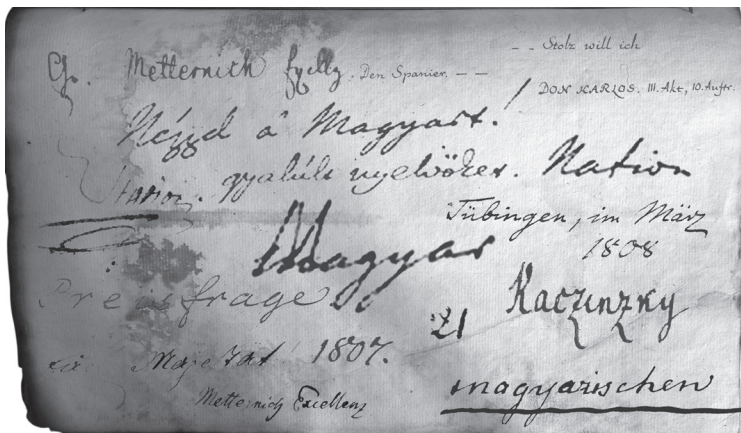 -- Stolz will ich
Gr. Metternich
Den Spanier. --
DON KARLOS. III. Akt, 10. Auftr.
Nézzd a' Magyart!
Nation
Tübingen, im März
1808
Magyar
Preisfrage
Kaczinzky
21
Majestät 1807.
Metternich Excellenz
magyarischen